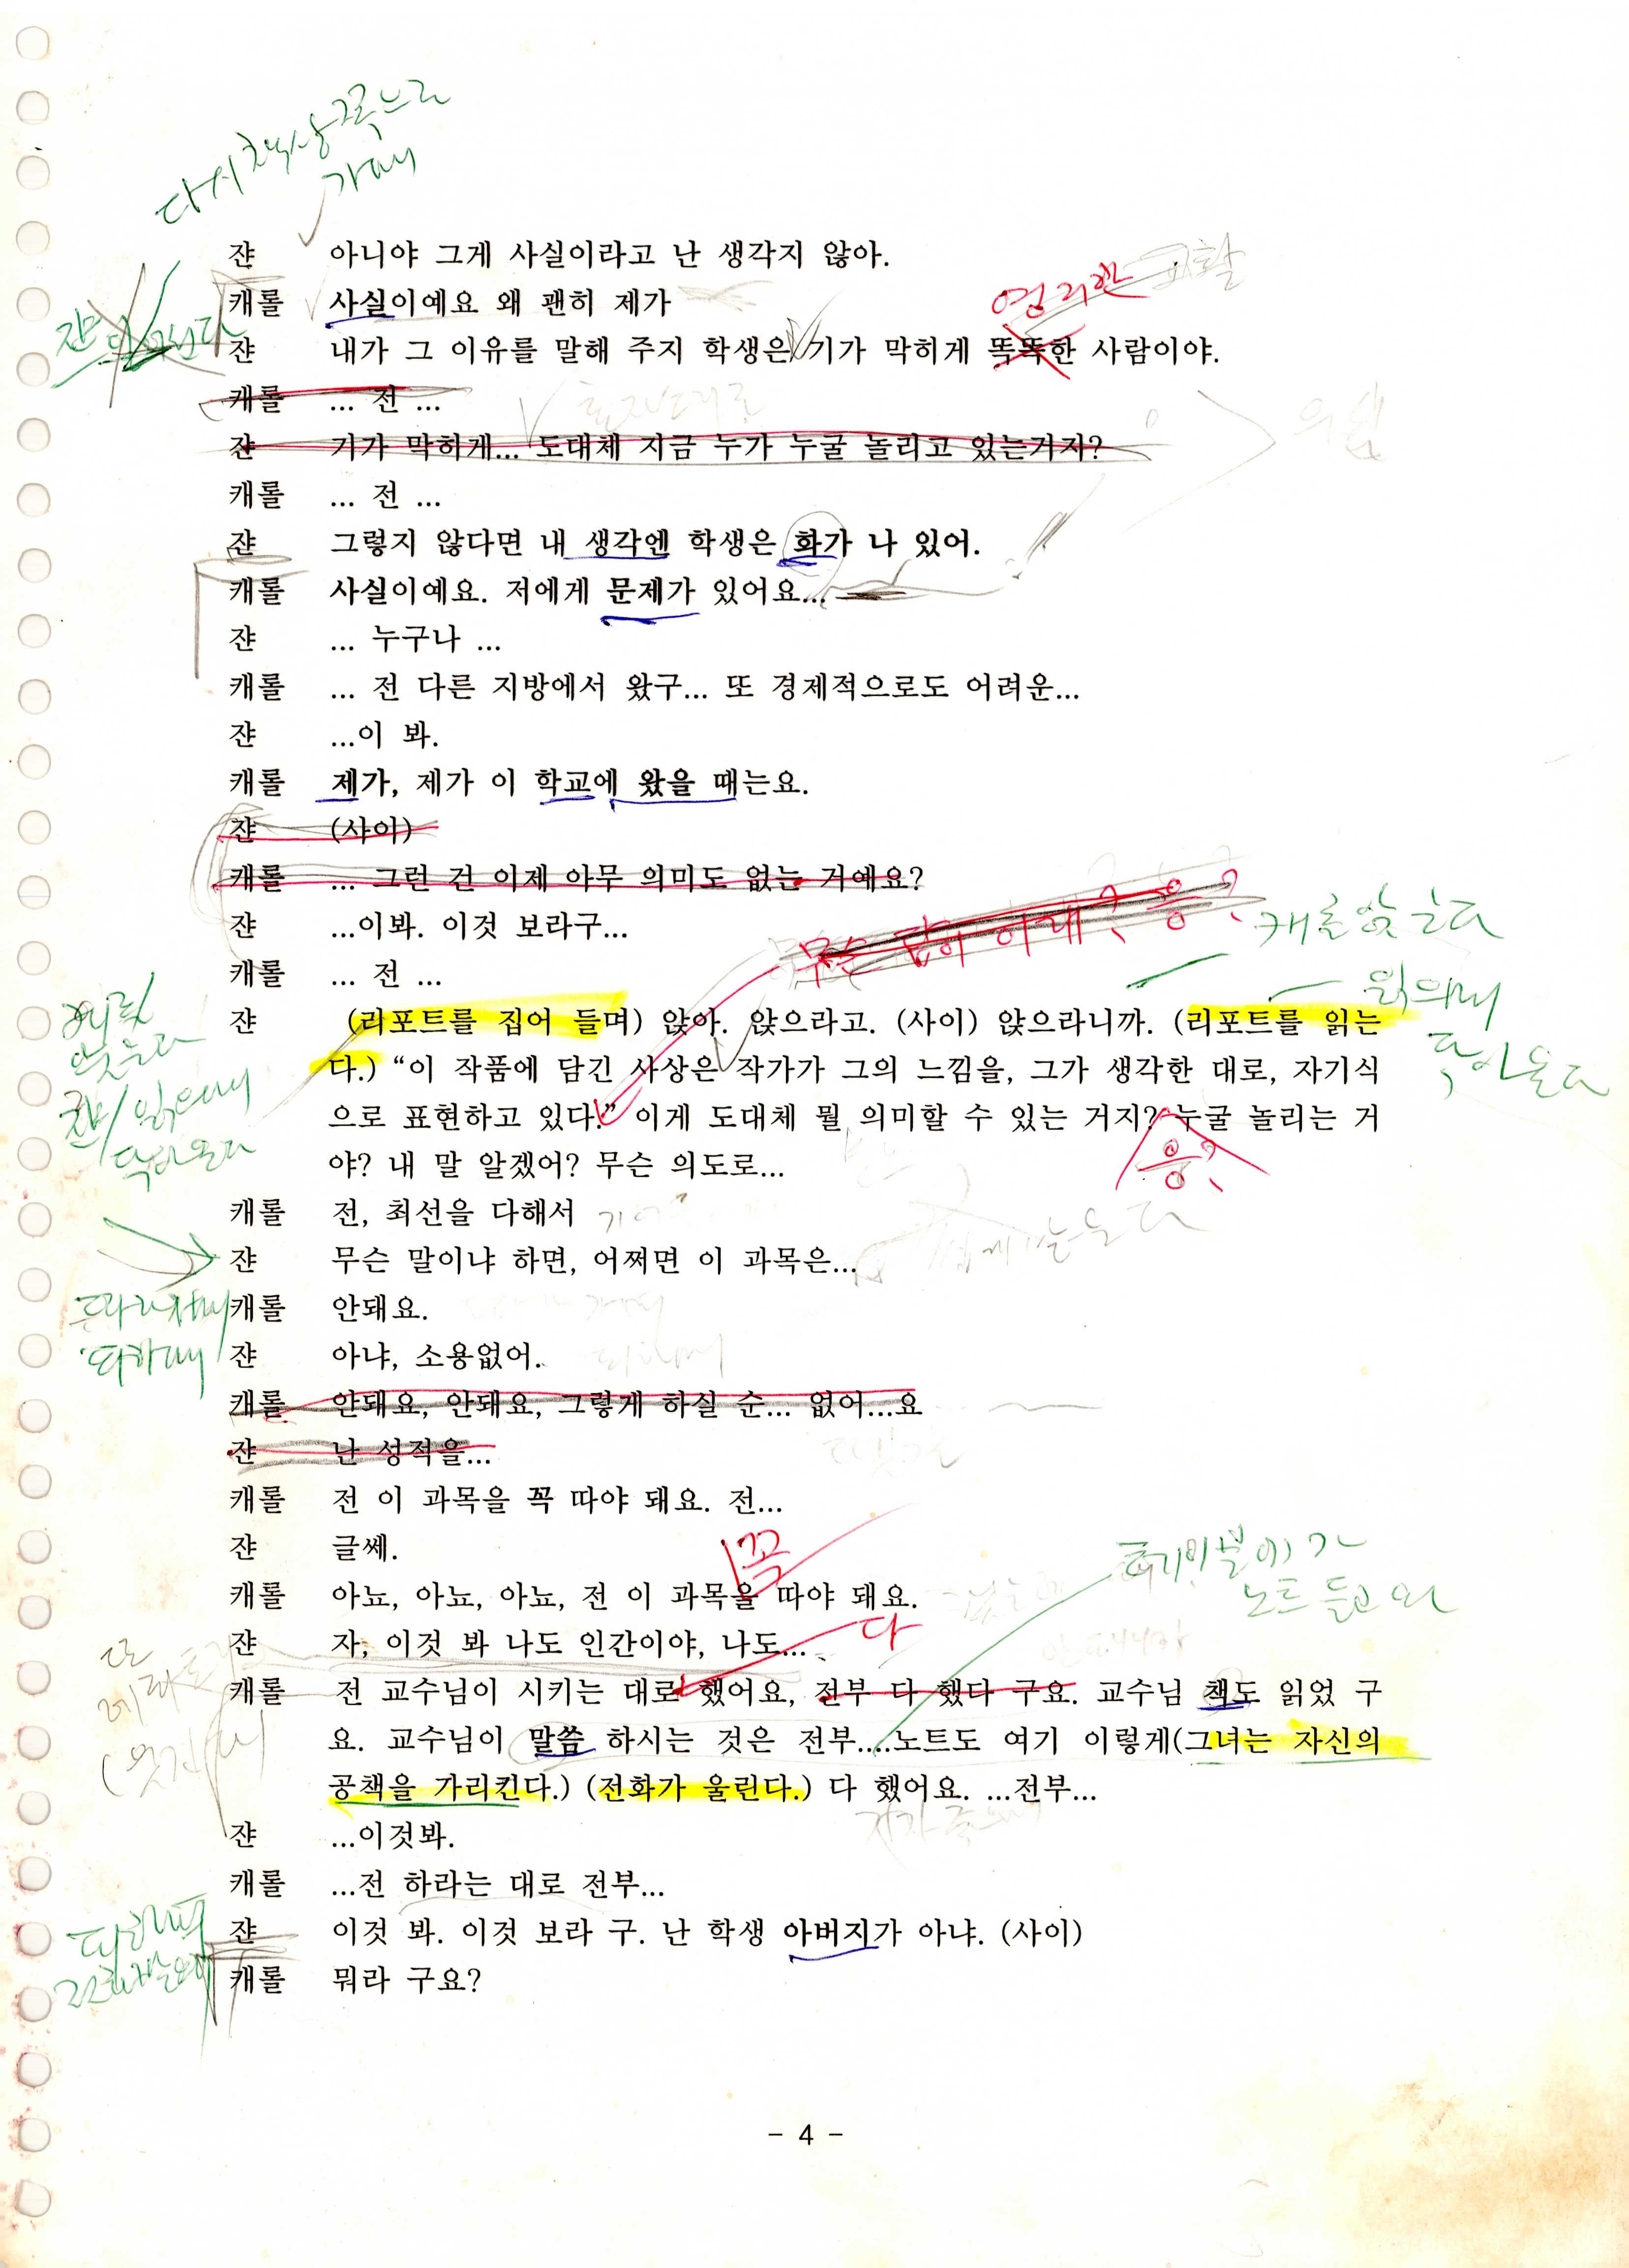 다시 책상 쪽으로
가며
쟌 아니야 그게 사실이라고 난 생각지 않아.
캐롤 사실이예요 왜 괜히 제가
영리한
쟌 내가 그 이유를 말해 주지 학생은 기가 막히게 똑똑한 사람이야.
캐롤 ... 전 ...
쟌 기가 막히게... 도대체 지금 누가 누굴 놀리고 있는거지?
캐롤 ... 전 ...
쟌 그렇지 않다면 내 생각엔 학생은 화가 나 있어.
캐롤 사실이예요. 저에게 문제가 있어요...
쟌 ... 누구나 ...
캐롤 ... 전 다른 지방에서 왔구... 또 경제적으로도 어려운...
쟌 ...이 봐.
캐롤 제가, 제가 이 학교에 왔을 때는요.
쟌 (사이)
캐롤 ... 그런 건 이제 아무 의미도 없는 거예요?
쟌 ...이봐. 이것 보라구...
무슨 답이 이래? 응?
캐롤 앉는다
캐롤 ... 전 ...
읽으며
다가온다
캐롤
앉는다
쟌 / 읽으며
다가온다
쟌 (리포트를 집어 들며) 앉아. 앉으라고. (사이) 앉으라니까. (리포트를 읽는
다.) “이 작품에 담긴 사상은 작가가 그의 느낌을, 그가 생각한 대로, 자기식
으로 표현하고 있다.” 이게 도대체 뭘 의미할 수 있는 거지? 누굴 놀리는 거
응?
야? 내 말 알겠어? 무슨 의도로...
캐롤 전, 최선을 다해서
쟌 무슨 말이냐 하면, 어쩌면 이 과목은...
캐롤 안돼요.
쟌 아냐, 소용없어.
캐롤 안돼요, 안돼요, 그렇게 하실 순... 없어...요
쟌 난 성적을...
캐롤 전 이 과목을 꼭 따야 돼요. 전...
쟌 글쎄.
꼭
캐롤 아뇨, 아뇨, 아뇨, 전 이 과목을 따야 돼요.
노트 들고 와
쟌 자, 이것 봐 나도 인간이야, 나도...
다
캐롤 전 교수님이 시키는 대로 했어요, 전부 다 했다 구요. 교수님 책도 읽었 구
요. 교수님이 말씀 하시는 것은 전부....노트도 여기 이렇게(그녀는 자신의
공책을 가리킨다.) (전화가 울린다.) 다 했어요. ...전부...
쟌 ...이것봐.
캐롤 ...전 하라는 대로 전부...
쟌 이것 봐. 이것 보라 구. 난 학생 아버지가 아냐. (사이)
캐롤 뭐라 구요?
- 4 -